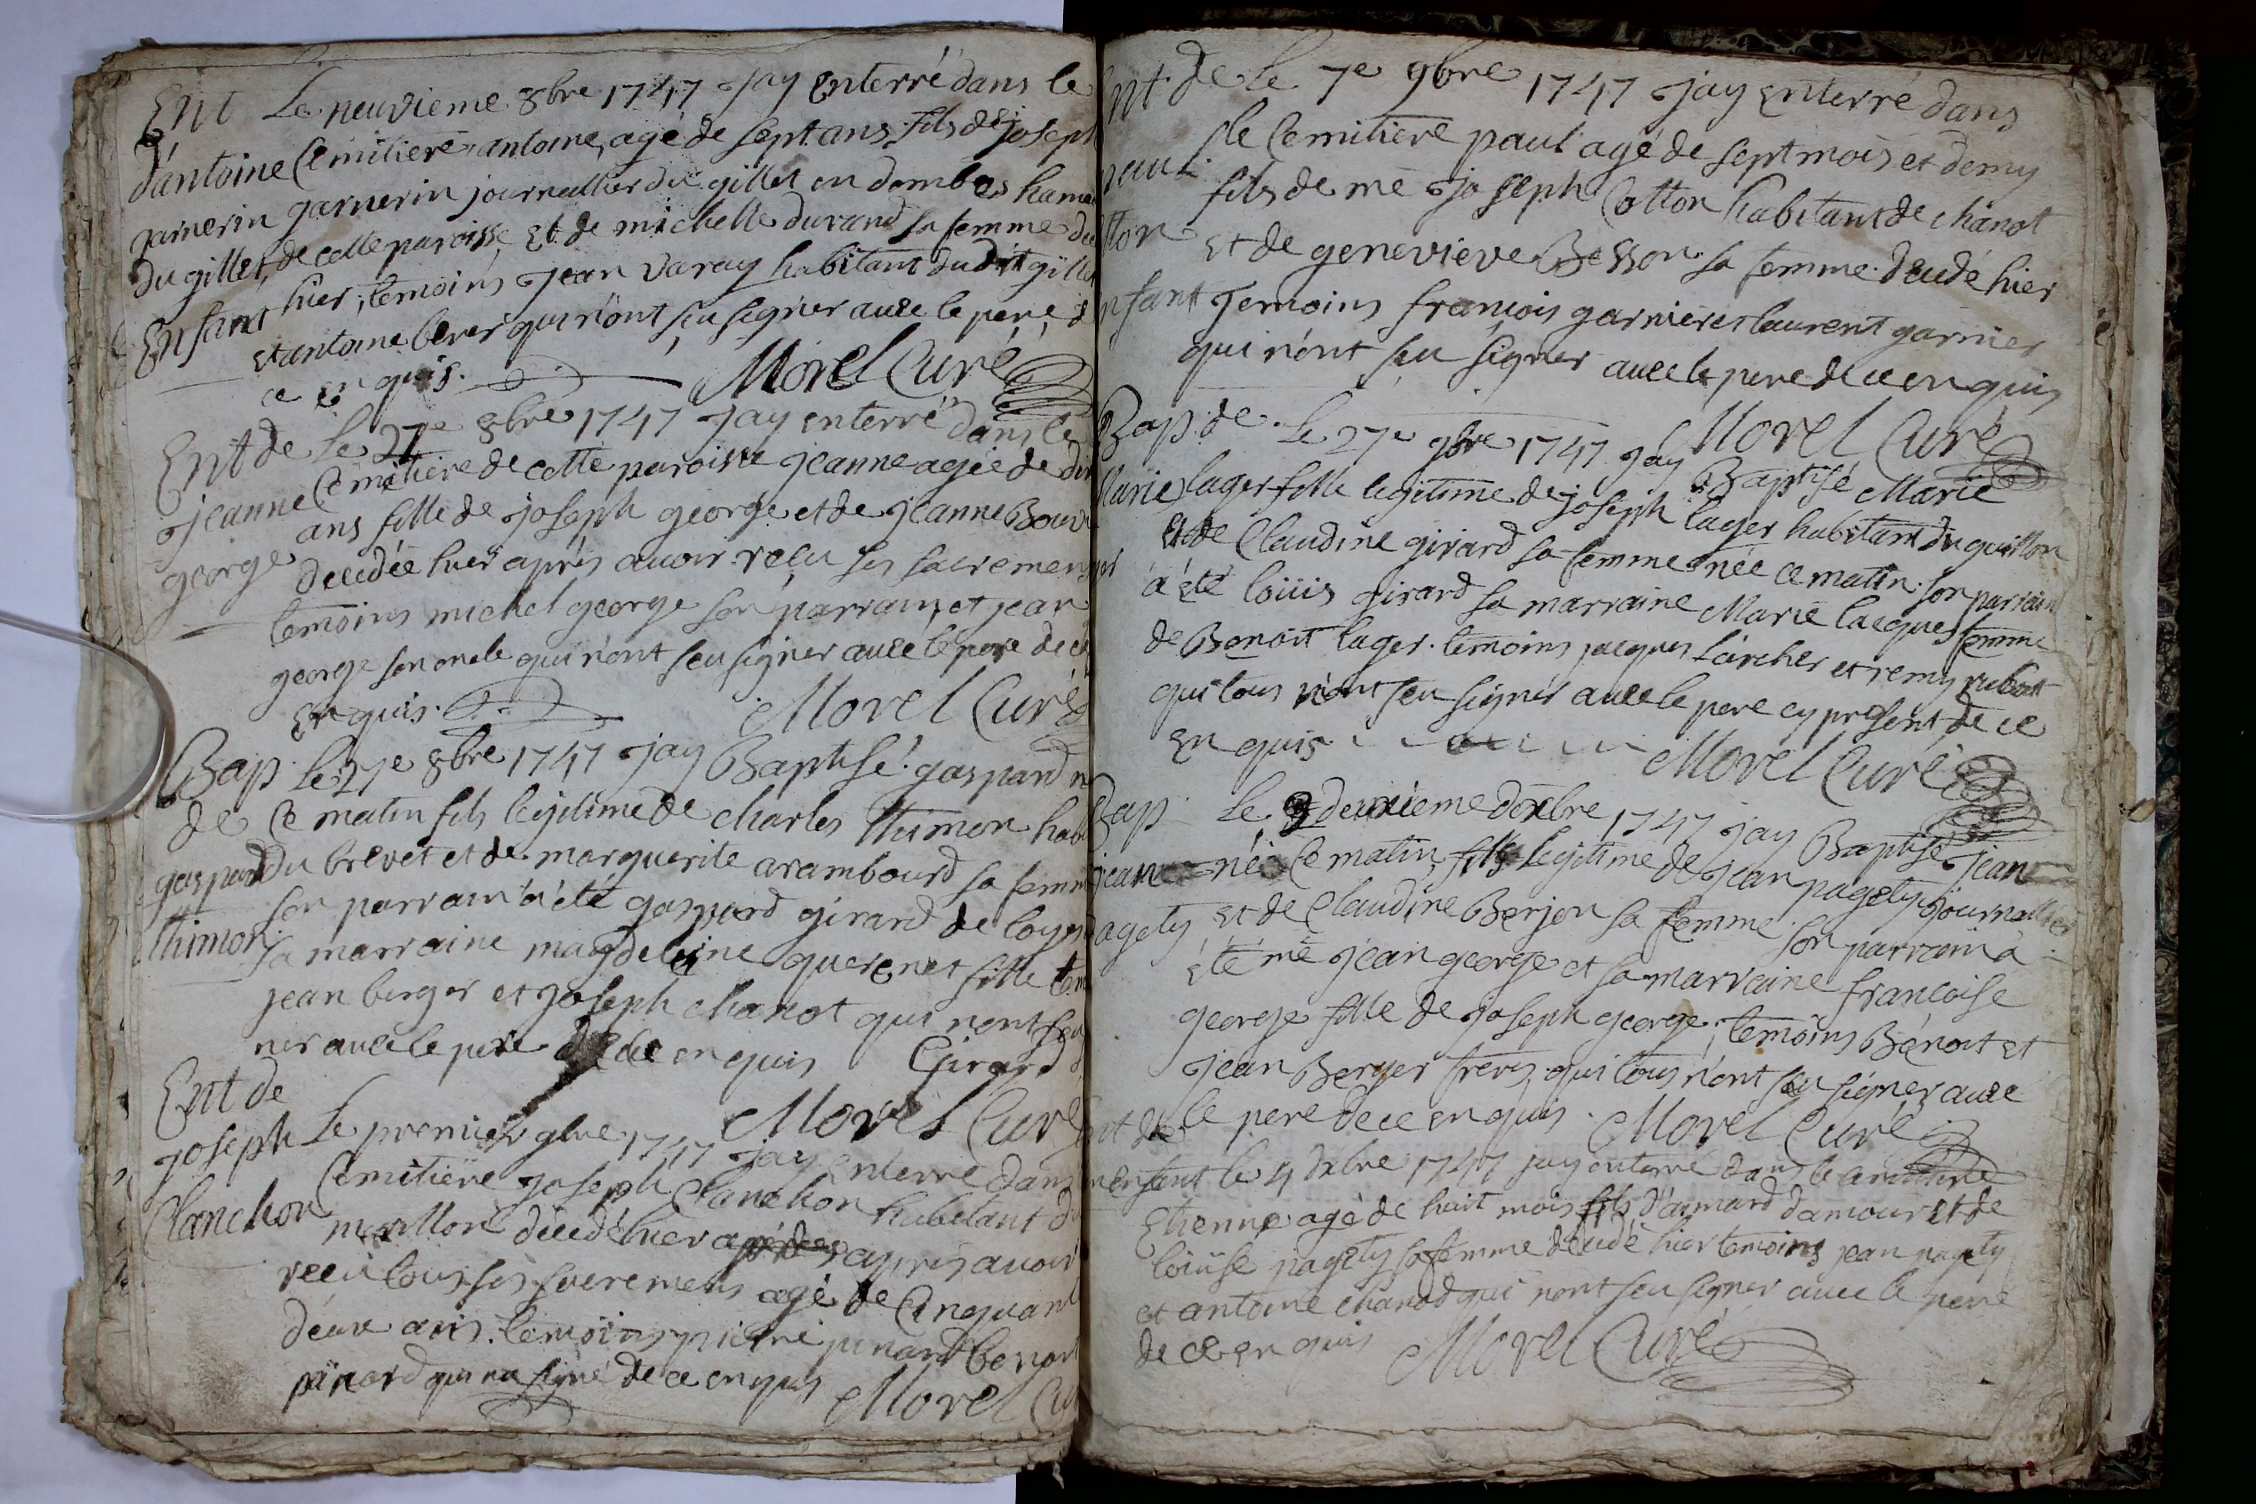 Ent Le neuvieme 8bre 1747 Jay Enterré dans le
d'antoine Cemitiere antoine, agé de sept ans fils de joseph
garnerin garnerin journallier du gillet en dombes hame
du gillet, de cette paroisse et de michelle durand sa femme
Enfant hier, temoins Jean varay habitant dudit gillet
et antoine berer qui n'ont seu signer avec le pere, d
ce en quis. Morel Curé
Ent de Le 27e 8bre 1747 Jay enterré dans le
Jeanne Cemitiere de cette paroisse Jeanne agée de
george ans fille de joseph george et de Jeanne
decedée hier aprés avoir reçu ses sacremens
temoins michel george son parrain, et jean
george son oncle qui n'ont seu signer avec le pere de ce
en quis. Morel Curé
Bap. Le 27e 8bre 1747 Jay Baptisé gaspard n
de Ce matin fils legitime de charles thimon hab
gaspard du brevet et de marguerite arambourd sa femme
thimon son parrain a été gaspard girard de
sa marraine magdeleine quesenet fille tem
jean berger et Joseph chanot qui nont seu
ner avec le pere de ce en quis Girard
Morel Curé
Ent de
joseph Le premier 9bre 1747 Jay Enterré dans
Clanchon Cemitiere Joseph Clanchon habitant d
decedé hier aprés avoir
receu tous ses sacremens agé de Cinquant
deux ans. temoins pierre pinard benoit
pinard qui na signé de ce enquis Morel Cu
Ent de Le 7e 9bre 1747 Jay Enterré dans
paul le Cemitiere paul agé de sept mois et demy
tton fils de me Joseph Cotton habitant de chanot
et de genevieve Besson sa femme decedé hier
nfant Temoins francois garnier et laurent garnier
qui n'ont seu signer avec le pere de ce en quis
Morel Curé
Bap. de Le 27e 9bre 1747 Jay Baptisé Marie
Marie lager fille legitime de joseph lager habitant du guillon
et de Claudine girard sa femme née ce matin. son parrain
à été loüis girard sa marraine Marie lacques femme
de Benoit lager. temoins jacques larcher et remy
qui tous n'ont seu signer avec le pere cy present de ce
En quis Morel Curé
Bap Le deuxieme dexbre 1747 Jay Baptisé Jean
jean né Ce matin fils legitime de Jean pagety journallier
pagety et de Claudine Berjon sa femme. son parrain à
été me Jean george et sa marraine francoise
george fille de joseph george; temoins Benoit et
Jean Berger freres, qui tous n'ont seu signer avec
le pere de ce en quis. Morel Curé
nt de
enfant le 4 dxbre 1747 jay enterré dans le Cemitiere
Etienne agé de huit mois fils d'aimard damour et de
loüise pagety sa femme decedé hier temoins jean pagety
et antoine chanod qui nont seu signer avec le pere
de ce en quis Morel Curé